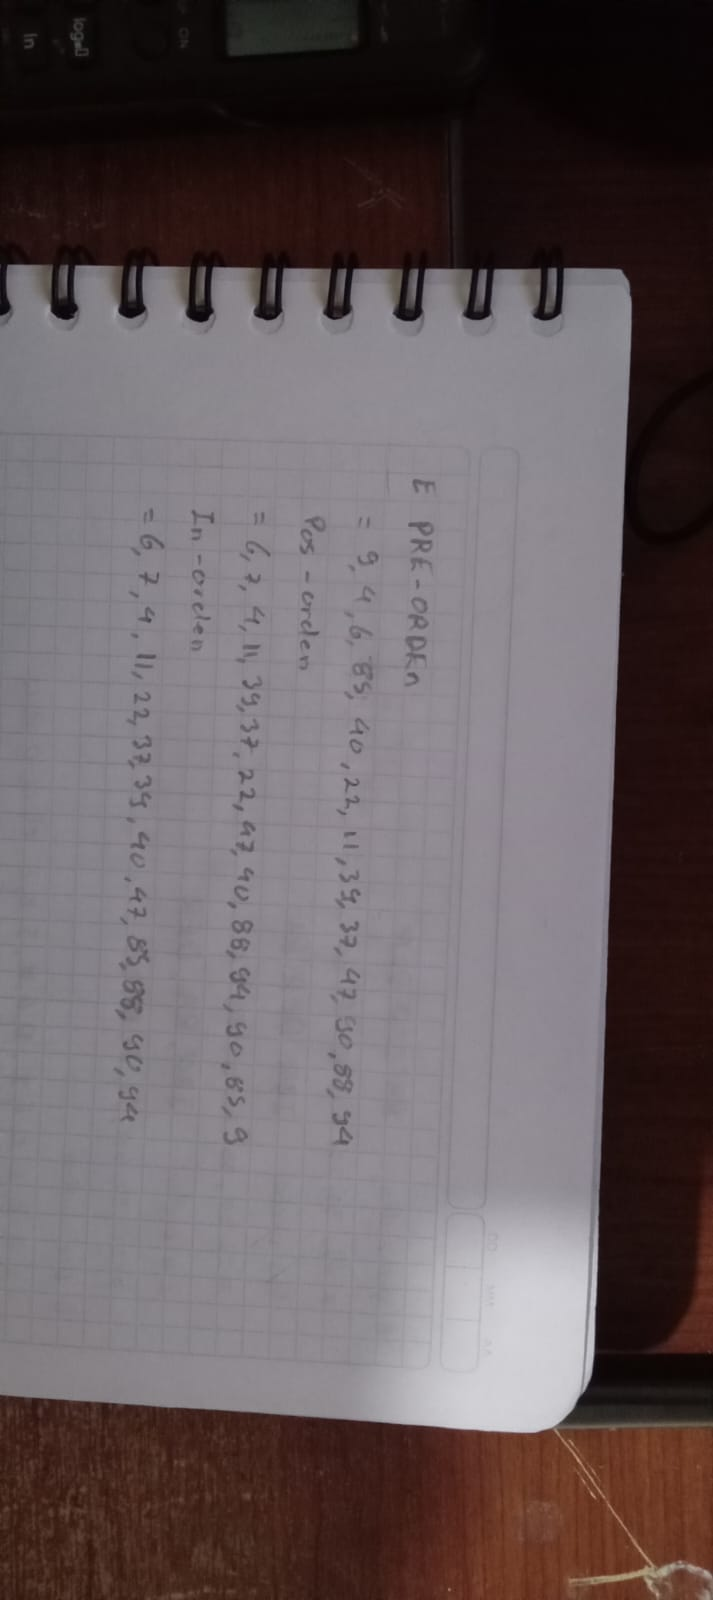 E PRE-ORDEn
= 9, 4, 6, 85, 40, 22, 11, 39, 37, 47, 90, 88, 94
Pos-orden
= 6, 7, 4, 11, 39, 37, 22, 47, 40, 88, 94, 90, 85, 9
In-orden
= 6, 7, 4, 11, 22, 37, 39, 40, 47, 85, 88, 90, 94
log
ON
ln